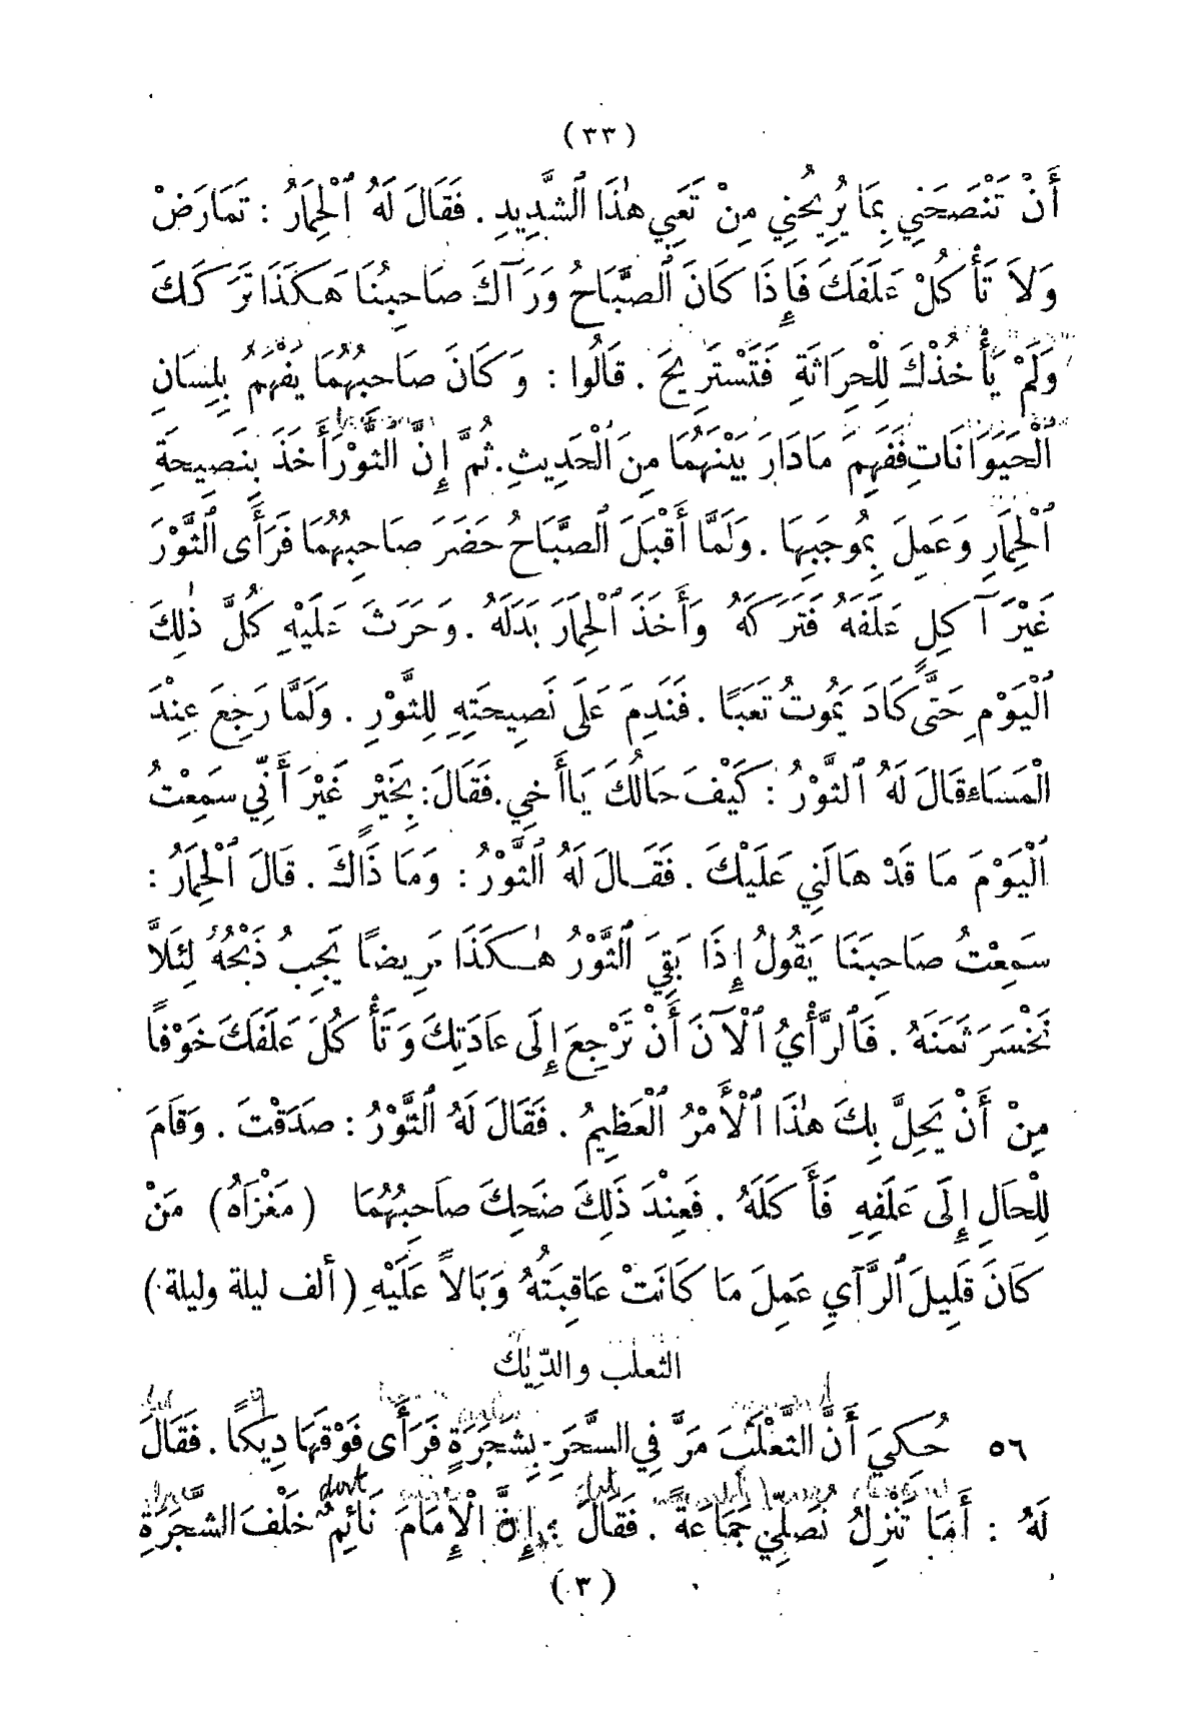 (٣٣)
أَنْ تَنْصَحَنِي بِمَا يُرِيحُنِي مِنْ تَعَبِي هٰذَا ٱلشَّدِيدِ . فَقَالَ لَهُ ٱلْحِمَارُ : تَمَارَضْ
وَلَا تَأْكُلْ عَلَفَكَ فَإِذَا كَانَ ٱلصَّبَاحُ وَرَآكَ صَاحِبُنَا هَكَذَا تَرَكَكَ
وَلَمْ يَأْخُذْكَ لِلْحِرَاثَةِ فَتَسْتَرِيحَ . قَالُوا : وَكَانَ صَاحِبُهُمَا يَفْهَمُ بِلِسَانِ
ٱلْحَيَوَانَاتِ فَفَهِمَ مَا دَارَ بَيْنَهُمَا مِنَ ٱلْحَدِيثِ . ثُمَّ إِنَّ الثَّوْرَ أَخَذَ بِنَصِيحَةِ
ٱلْحِمَارِ وَعَمِلَ بِمُوجَبِهَا . وَلَمَّا أَقْبَلَ ٱلصَّبَاحُ حَضَرَ صَاحِبُهُمَا فَرَأَى ٱلثَّوْرَ
غَيْرَ آكِلٍ عَلَفَهُ فَتَرَكَهُ وَأَخَذَ ٱلْحِمَارَ بَدَلَهُ . وَحَرَثَ عَلَيْهِ كُلَّ ذٰلِكَ
ٱلْيَوْمِ حَتَّى كَادَ يَمُوتُ تَعَبًا . فَنَدِمَ عَلَى نَصِيحَتِهِ لِلثَّوْرِ . وَلَمَّا رَجِعَ عِنْدَ
الْمَسَاءِ قَالَ لَهُ ٱلثَّوْرُ : كَيْفَ حَالُكَ يَا أَخِي . فَقَالَ : بِخَيْرٍ غَيْرَ أَنِّي سَمِعْتُ
ٱلْيَوْمَ مَا قَدْ هَالَنِي عَلَيْكَ . فَقَالَ لَهُ ٱلثَّوْرُ : وَمَا ذَاكَ . قَالَ ٱلْحِمَارُ :
سَمِعْتُ صَاحِبَنَا يَقُولُ إِذَا بَقِيَ ٱلثَّوْرُ هٰكَذَا مَرِيضًا يَجِبُ ذَبْحُهُ لِئَلَّا
نَخْسَرَ ثَمَنَهُ . فَٱلرَّأْيُ ٱلْآنَ أَنْ تَرْجِعَ إِلَى عَادَتِكَ وَتَأْكُلَ عَلَفَكَ خَوْفًا
مِنْ أَنْ يَحِلَّ بِكَ هٰذَا ٱلْأَمْرُ ٱلْعَظِيمُ . فَقَالَ لَهُ ٱلثَّوْرُ : صَدَقْتَ . وَقَامَ
لِلْحَالِ إِلَى عَلَفِهِ فَأَكَلَهُ . فَعِنْدَ ذَلِكَ ضَحِكَ صَاحِبُهُمَا (مَغْزَاهُ) مَنْ
كَانَ قَلِيلَ ٱلرَّآيِ عَمِلَ مَا كَانَتْ عَاقِبَتُهُ وَبَالاً عَلَيْهِ (ألف ليلة وليلة)
الثعلب والدِّيك
٥٦ حُكِيَ أَنَّ الثَّعْلَبَ مَرَّ فِي السَّحَرِ بِشَجَرَةٍ فَرَأَى فَوْقَهَا دِيكًا . فَقَالَ
لَهُ : أَمَا تَنْزِلُ نُصَلِّي جَمَاعَةً . فَقَالَ : إِنَّ الْإِمَامَ نَائِمٌ خَلْفَ الشَّجَرَةِ
(٣)